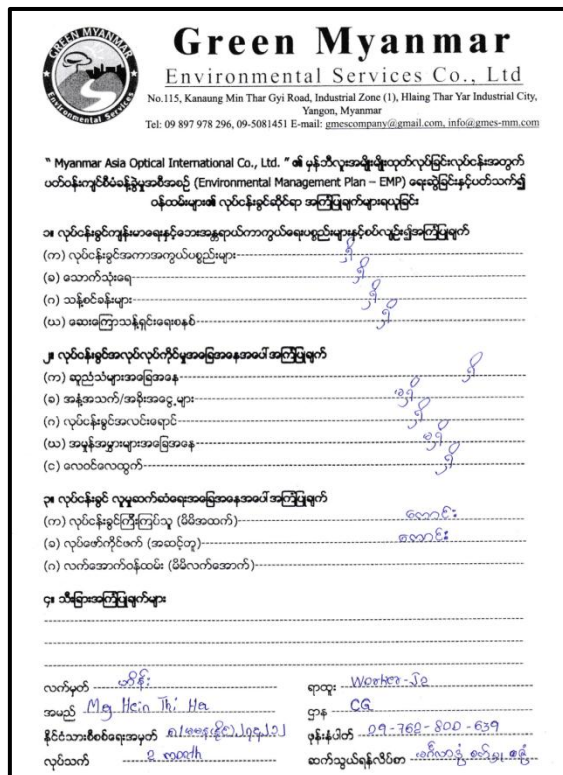 GREEN MYANMAR
Environmental Services
Green Myanmar
Environmental Services Co., Ltd
No.115, Kanaung Min Thar Gyi Road, Industrial Zone (1), Hlaing Thar Yar Industrial City,
Yangon, Myanmar
Tel: 09 897 978 296, 09-5081451 E-mail: gmescompany@gmail.com, info@gmes-mm.com
“ Myanmar Asia Optical International Co., Ltd. ” ၏ မှန်ဘီလူးအမျိုးမျိုးထုတ်လုပ်ခြင်းလုပ်ငန်းအတွက်
ပတ်ဝန်းကျင်စီမံခန့်ခွဲမှုအစီအစဉ် (Environmental Management Plan – EMP) ရေးဆွဲခြင်းနှင့်ပတ်သက်၍
ဝန်ထမ်းများ၏ လုပ်ငန်းခွင်ဆိုင်ရာ အကြံပြုချက်များရယူခြင်း
၁။ လုပ်ငန်းခွင်ကျန်းမာရေးနှင့်ဘေးအန္တရာယ်ကာကွယ်ရေးပစ္စည်းများနှင့်စပ်လျဉ်း၍အကြံပြုချက်
(က) လုပ်ငန်းခွင်အကာအကွယ်ပစ္စည်းများ ရှိ
(ခ) သောက်သုံးရေ ရှိ
(ဂ) သန့်စင်ခန်းများ ရှိ
(ဃ) ဆေးကြောသန့်ရှင်းရေးစနစ် ရှိ
၂။ လုပ်ငန်းခွင်အလုပ်လုပ်ကိုင်မှုအခြေအနေအပေါ် အကြံပြုချက်
(က) ဆူညံသံများအခြေအနေ ရှိ
(ခ) အနံ့အသက်/အခိုးအငွေ့များ မရှိ
(ဂ) လုပ်ငန်းခွင်အလင်းရောင် ရှိ
(ဃ) အမှုန်အမွှားများအခြေအနေ မရှိ
(င) လေဝင်လေထွက် ရှိ
၃။ လုပ်ငန်းခွင် လူမှုဆက်ဆံရေးအခြေအနေအပေါ် အကြံပြုချက်
(က) လုပ်ငန်းခွင်ကြီးကြပ်သူ (မိမိအထက်) ကောင်း
(ခ) လုပ်ဖော်ကိုင်ဖက် (အဆင့်တူ) ကောင်း
(ဂ) လက်အောက်ဝန်ထမ်း (မိမိလက်အောက်)
၄။ သီးခြားအကြံပြုချက်များ
လက်မှတ် ဟိန်း ရာထူး Worker-J2
အမည် Mg Hein Thi Ha ဌာန CG
နိုင်ငံသားစိစစ်ရေးအမှတ် ဖုန်းနံပါတ် 09-762-800-639
လုပ်သက် 2 month ဆက်သွယ်ရန်လိပ်စာ